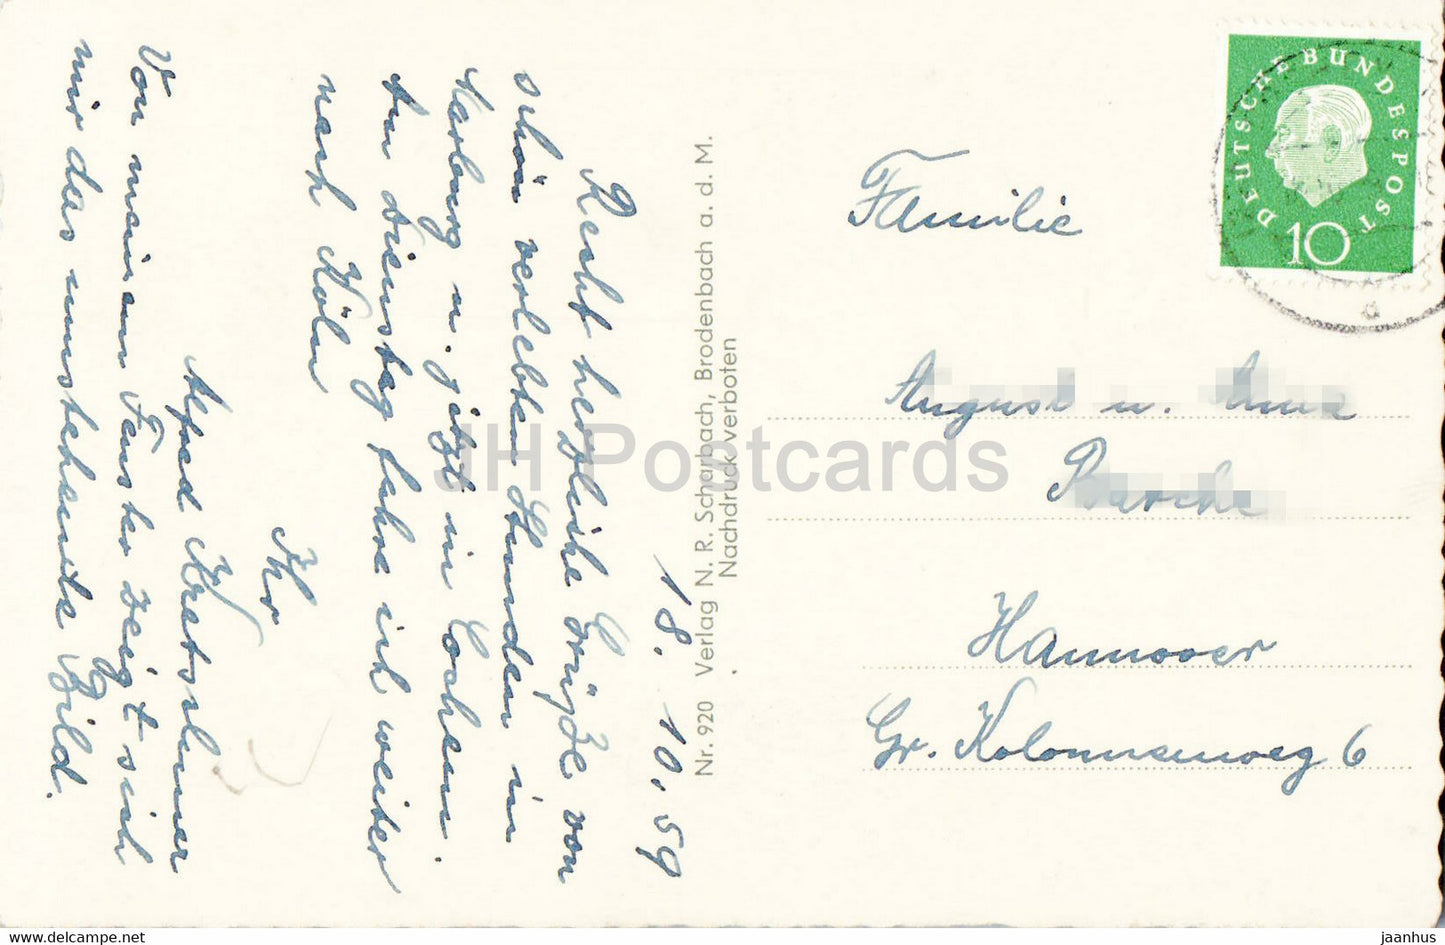 18. 10. 59
Recht herzliche Grüße von
schön verlebten Stunden in
Marburg u. jetzt in Cochem.
Am Dienstag fahre ich weiter
nach Köln
Ihr
Alfred Kratschmer
Von meinem Fenster zeigt sich
mir das umstehende Bild.
Nr. 920 Verlag N. R. Scharbach, Brodenbach a. d. M.
Nachdruck verboten
DEUTSCHE BUNDESPOST
10
Familie
August u. Anna
Hannover
Gr. Kolonnenweg 6
JH Postcards
jaanhus
www.hippostcard.com